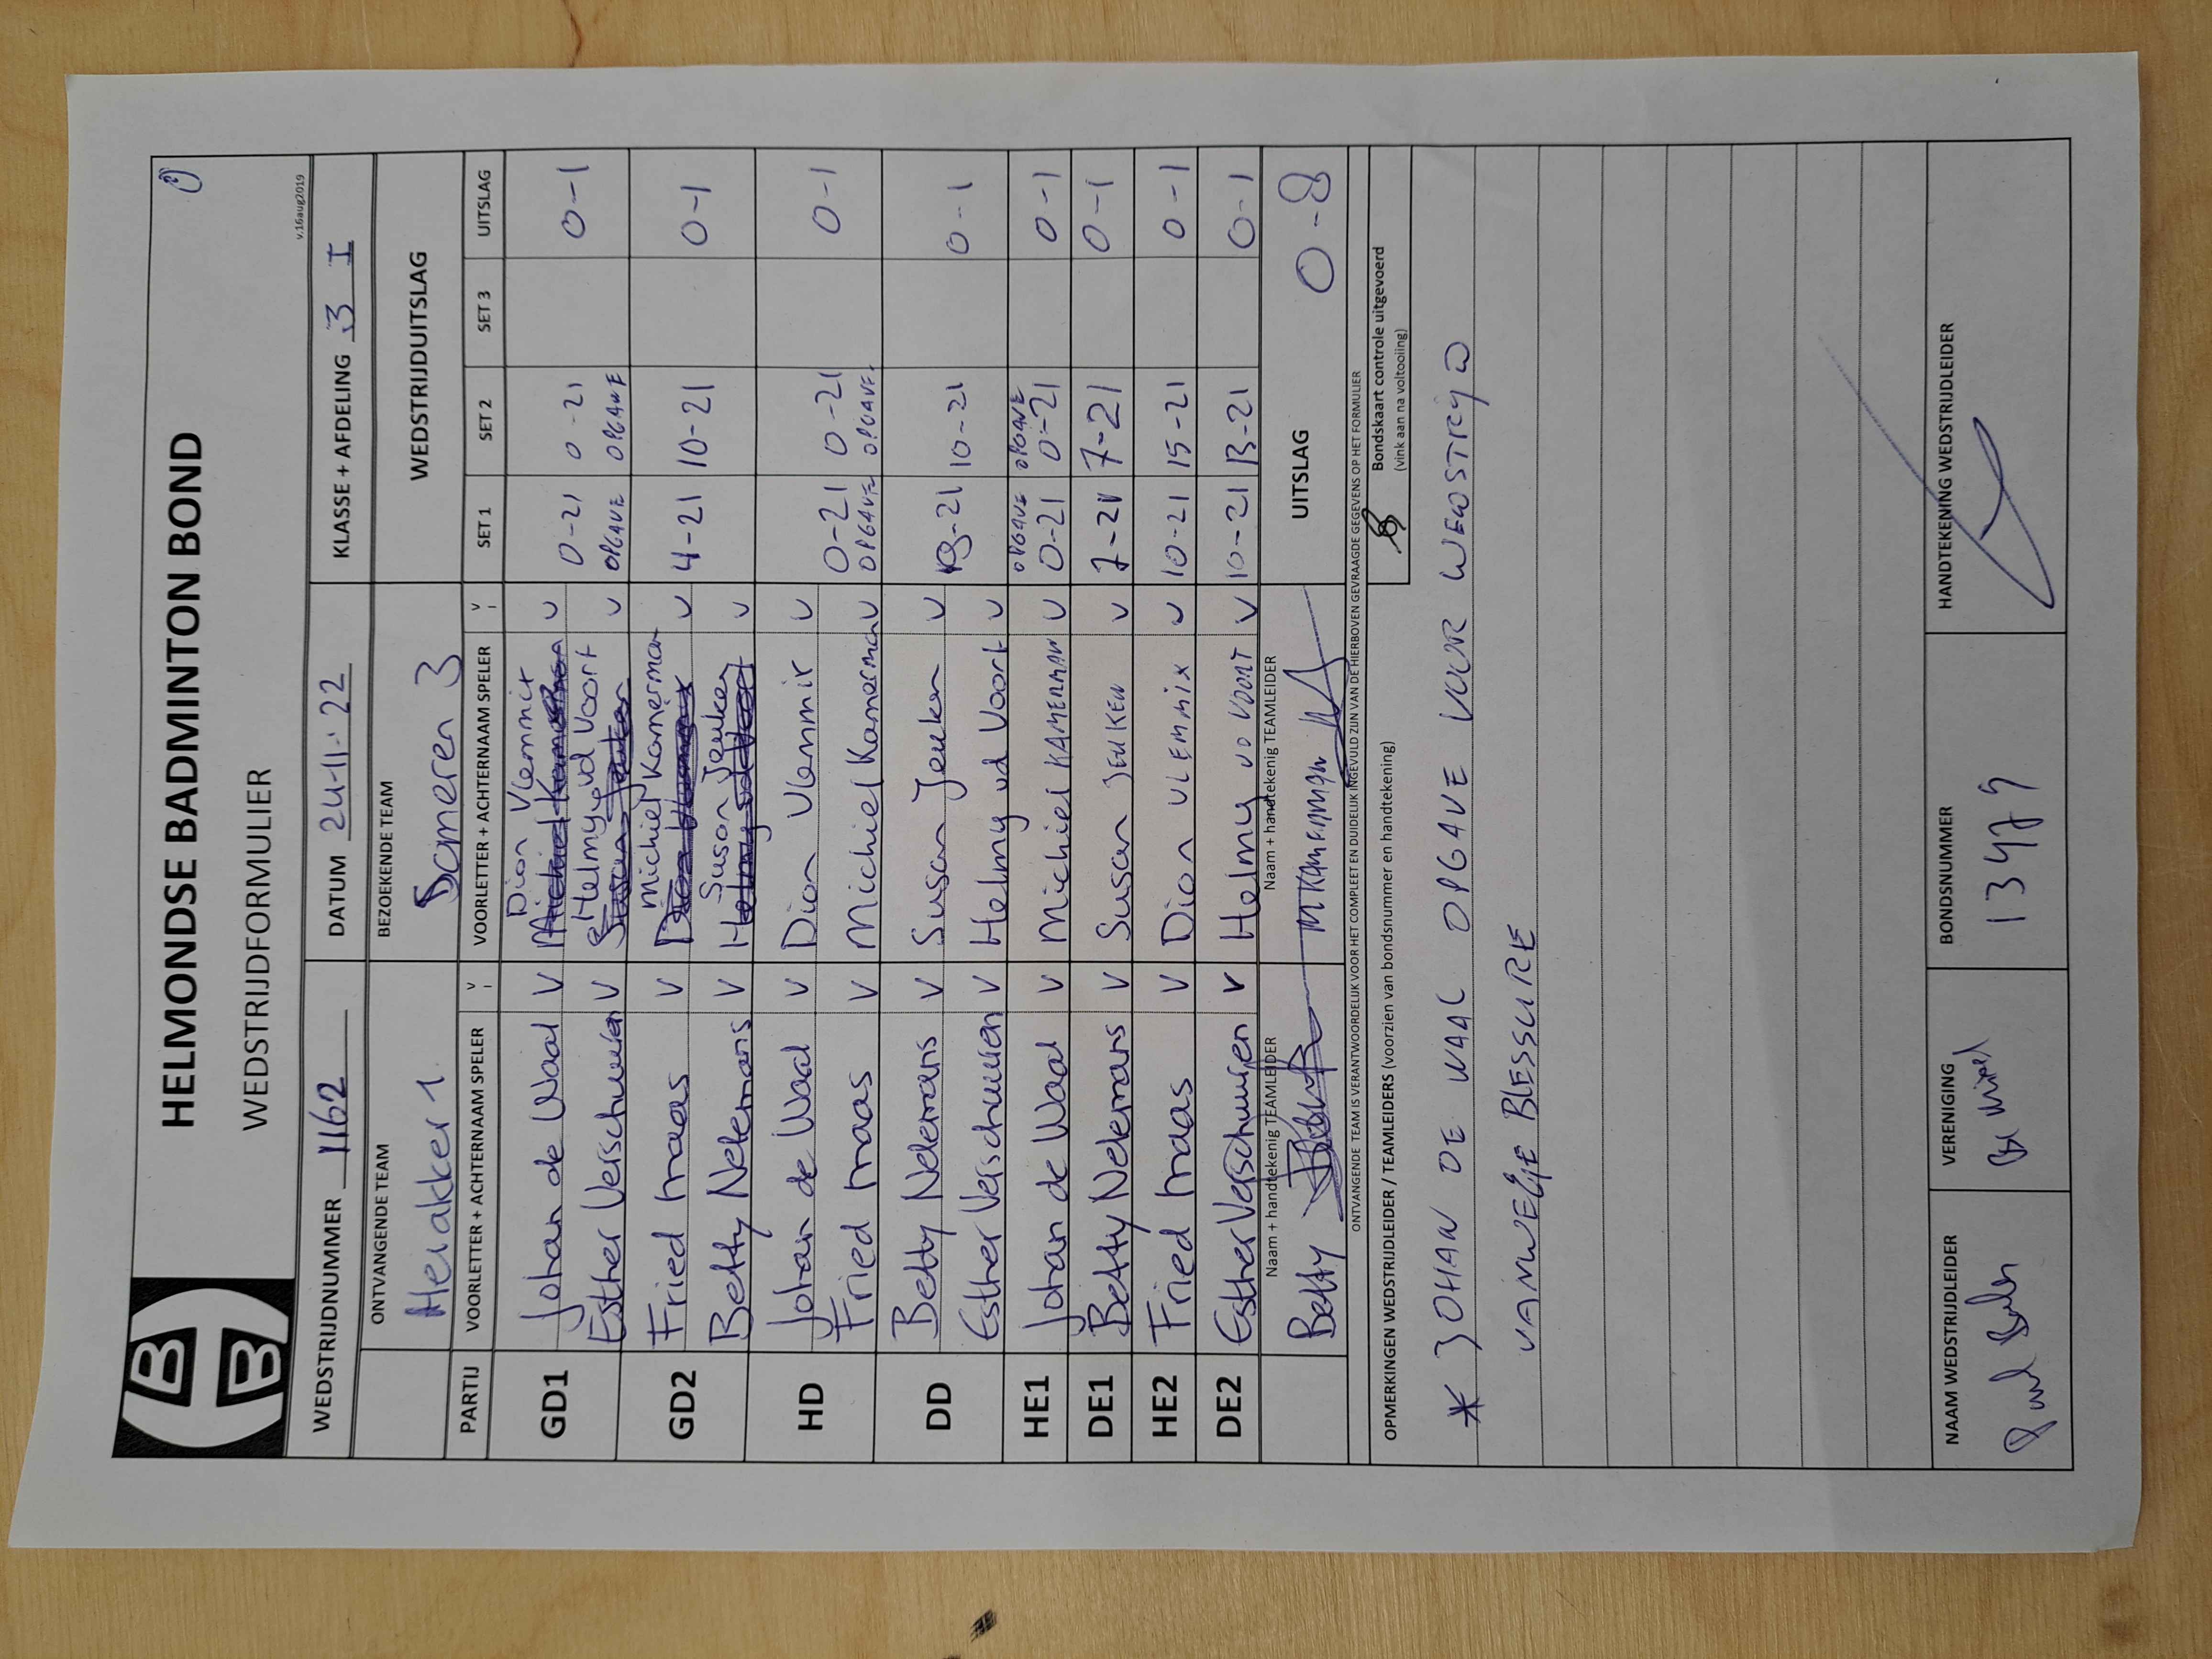 HELMONDSE BADMINTON BOND
WEDSTRIJDFORMULIER
v.16aug2019
WEDSTRIJDNUMMER 1162 DATUM 24-11-'22 KLASSE + AFDELING 3 I
ONTVANGENDE TEAM BEZOEKENDE TEAM WEDSTRIJDUITSLAG
Herakker 1 Someren 3
PARTIJ VOORLETTER + ACHTERNAAM SPELER V VOORLETTER + ACHTERNAAM SPELER V SET 1 SET 2 SET 3 UITSLAG
GD1 Johan de Waal V Dion Vlemmix V 0-21 0-21 0-1
Esther Verschuuren V Helmy vd Voort V OPGAVE OPGAVE
GD2 Fried maas V Michiel Kamerman V 4-21 10-21 0-1
Betty Nelemans V Susan Jeuken V
HD Johan de Waal V Dion Vlemmix V 0-21 0-21 0-1
Fried maas V Michiel Kamerman V OPGAVE OPGAVE
DD Betty Nelemans V Susan Jeuken V 10-21 0-1
Esther Verschuuren V Helmy vd Voort V
HE1 Johan de Waal V Michiel KAMERMAN V OPGAVE 0-21 OPGAVE 0-21 0-1
DE1 Betty Nelemans V Susan JEUKEN V 7-21 7-21 0-1
HE2 Fried maas V Dion VLEMMIX V 10-21 15-21 0-1
DE2 Esther Verschuuren V Helmy VD VOORT V 10-21 13-21 0-1
Naam + handtekenig TEAMLEIDER Naam + handtekenig TEAMLEIDER UITSLAG 0-8
Betty M KAMERMAN
ONTVANGENDE TEAM IS VERANTWOORDELIJK VOOR HET COMPLEET EN DUIDELIJK INGEVULD ZIJN VAN DE HIERBOVEN GEVRAAGDE GEGEVENS OP HET FORMULIER
OPMERKINGEN WEDSTRIJDLEIDER / TEAMLEIDERS (voorzien van bondsnummer en handtekening) Bondskaart controle uitgevoerd
(vink aan na voltooiing)
* JOHAN DE WAAL OPGAVE VOOR WEDSTRIJD
VANWEGE BLESSURE
NAAM WEDSTRIJDLEIDER VERENIGING BONDSNUMMER HANDTEKENING WEDSTRIJDLEIDER
13479